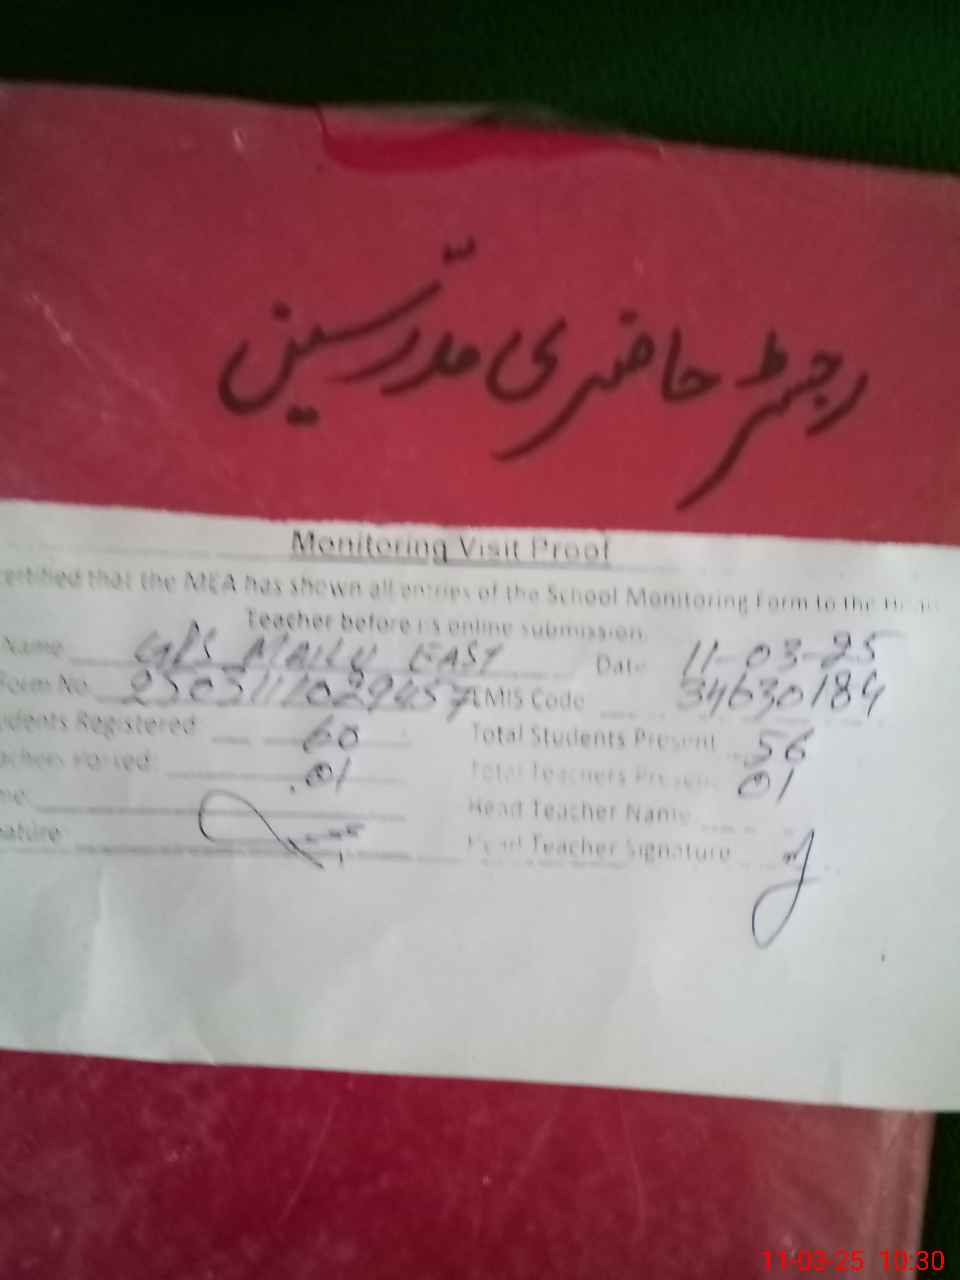 رجسٹر حاضری مدّرسین
Monitoring Visit Proof
certified that the MEA has shown all entries of the School Monitoring Form to the Head
Teacher before its online submission.
Name GPS MAILU EAST Date 11-03-25
Form No. EMIS Code 34630184
Students Registered 60 Total Students Present 56
Teachers Posted 01 Total Teachers Present 01
Head Teacher Name
Signature Head Teacher Signature
11-03-25 10:30